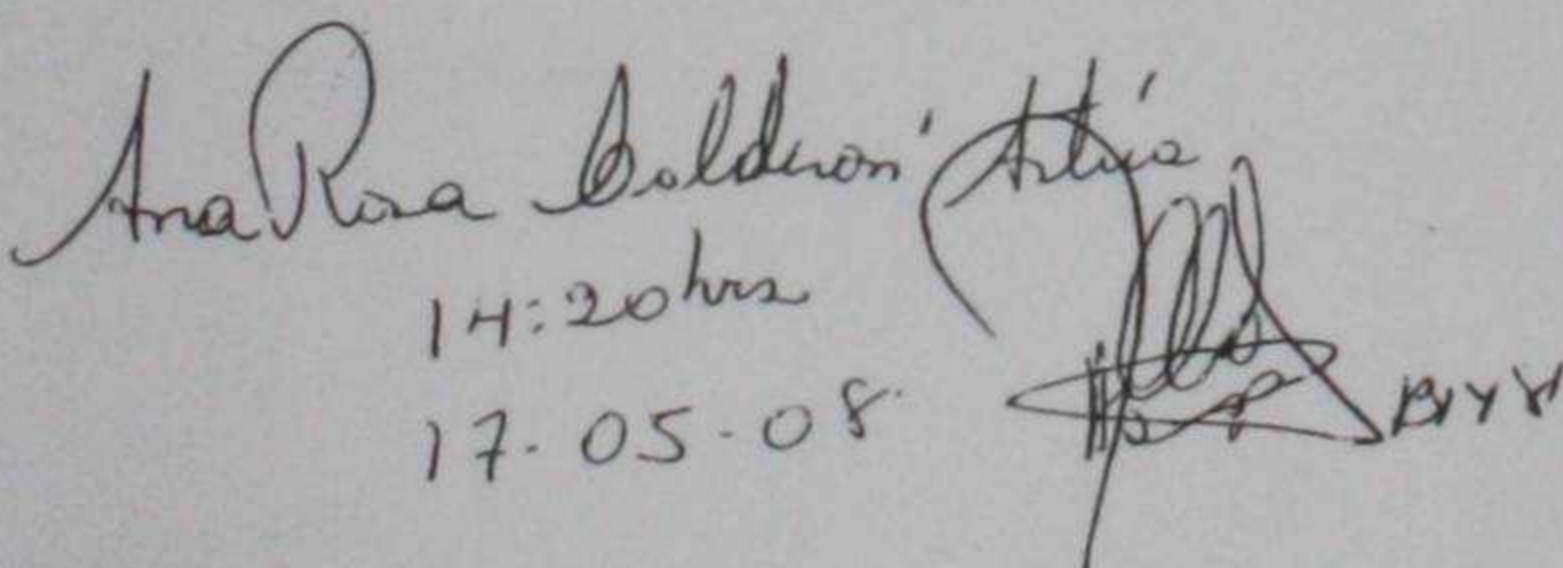 Ana Rosa Calderon
14:20 hrs
17-05-08